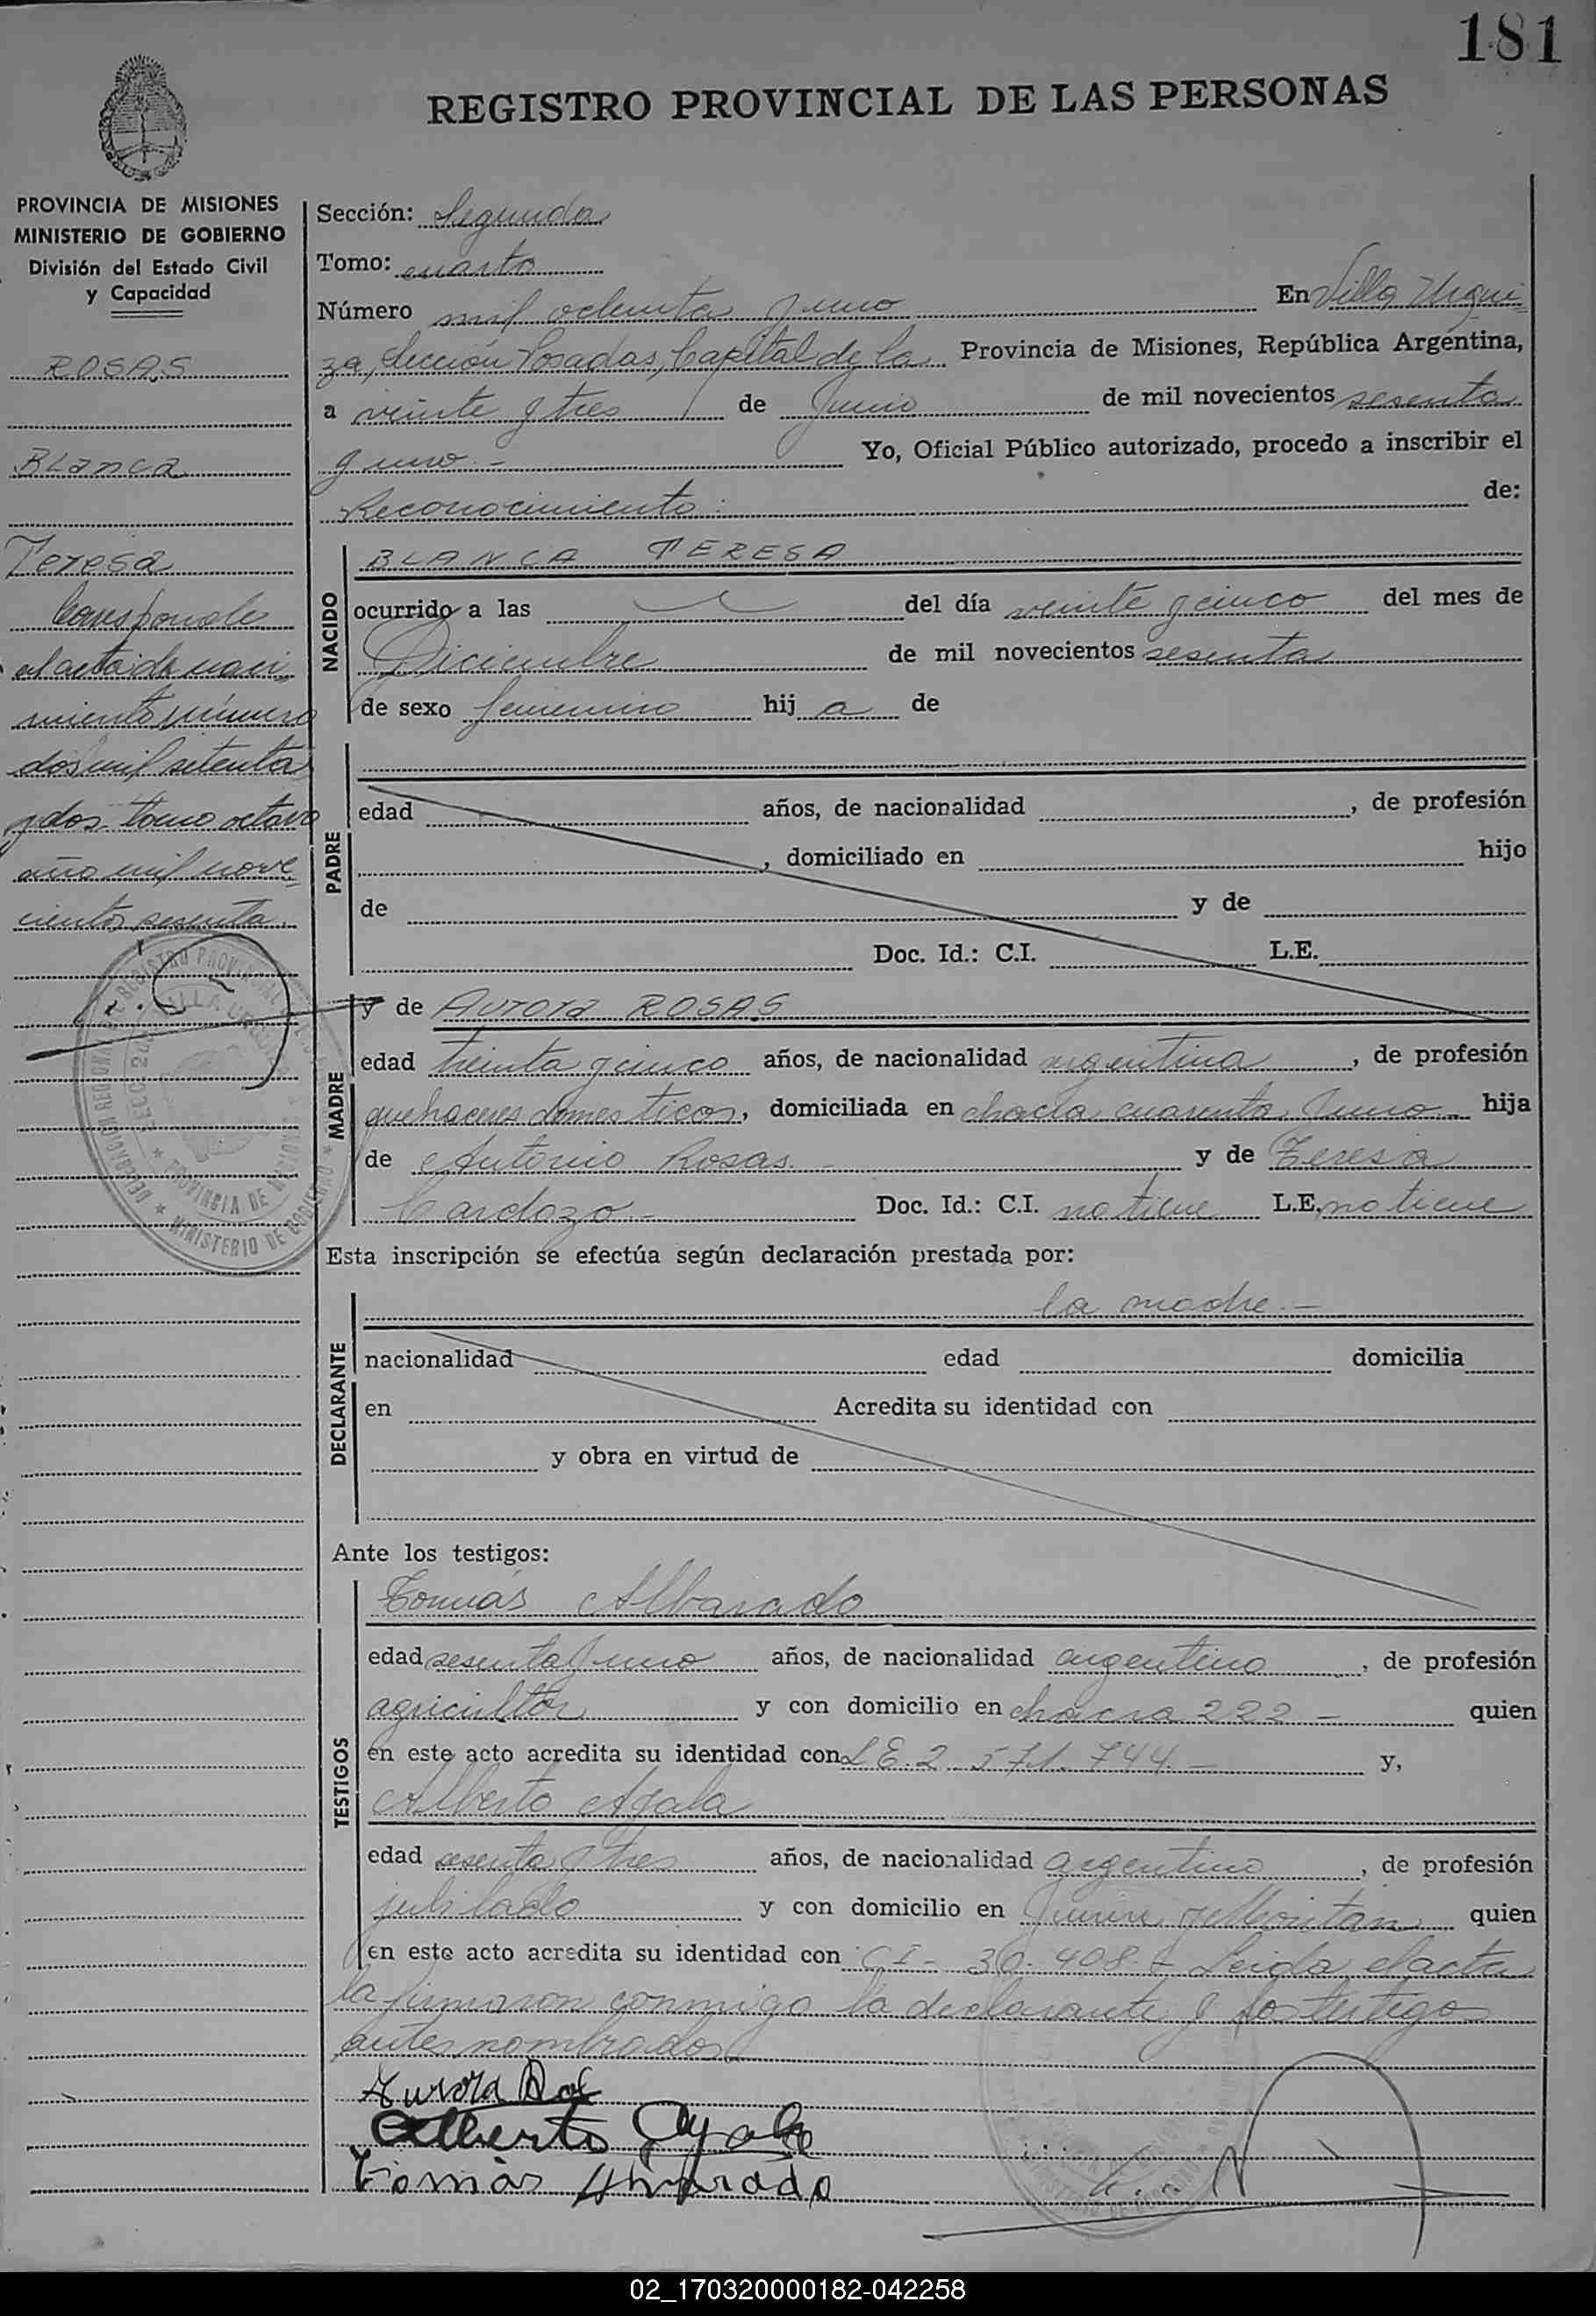 181
REGISTRO PROVINCIAL DE LAS PERSONAS
PROVINCIA DE MISIONES
MINISTERIO DE GOBIERNO
División del Estado Civil
y Capacidad
ROSAS
Blanca
Teresa
Corresponde
al acta de naci
miento número
dos mil setenta
y dos tomo octavo
año mil nove
cientos sesenta.
Sección: Segunda
Tomo: cuarto
Número mil ochenta y uno En Villa Urqui
za, Sección Posadas, Capital de la Provincia de Misiones, República Argentina,
a veinte y tres de Junio de mil novecientos sesenta
y uno.- Yo, Oficial Público autorizado, procedo a inscribir el
Reconocimiento de:
NACIDO
BLANCA TERESA
ocurrido a las del día veinte y cinco del mes de
Diciembre de mil novecientos sesenta
de sexo femenino hij a de
PADRE
edad años, de nacionalidad , de profesión
, domiciliado en hijo
de y de
Doc. Id.: C.I. L.E.
MADRE
y de Aurora ROSAS
edad treinta y cinco años, de nacionalidad argentina , de profesión
quehaceres domesticos, domiciliada en chacra cuarenta y uno hija
de Antonio Rosas.- y de Teresa
Cardozo - Doc. Id.: C.I. no tiene L.E. no tiene
Esta inscripción se efectúa según declaración prestada por:
la madre.-
DECLARANTE
nacionalidad edad domicilia
en Acredita su identidad con
y obra en virtud de
Ante los testigos:
TESTIGOS
Tomás Albarado
edad sesenta y uno años, de nacionalidad argentino , de profesión
agricultor y con domicilio en chacra 222 - quien
en este acto acredita su identidad con L E. 2.571.744.- y,
Alberto Ayala
edad sesenta y tres años, de nacionalidad argentino , de profesión
jubilado y con domicilio en quien
en este acto acredita su identidad con CI- 30.408.- Leida el acta
la firmaron conmigo la declarante y los testigos
antes nombrados
Aurora Ros
Alberto Ayala
Tomás Alvarado
02_170320000182-042258